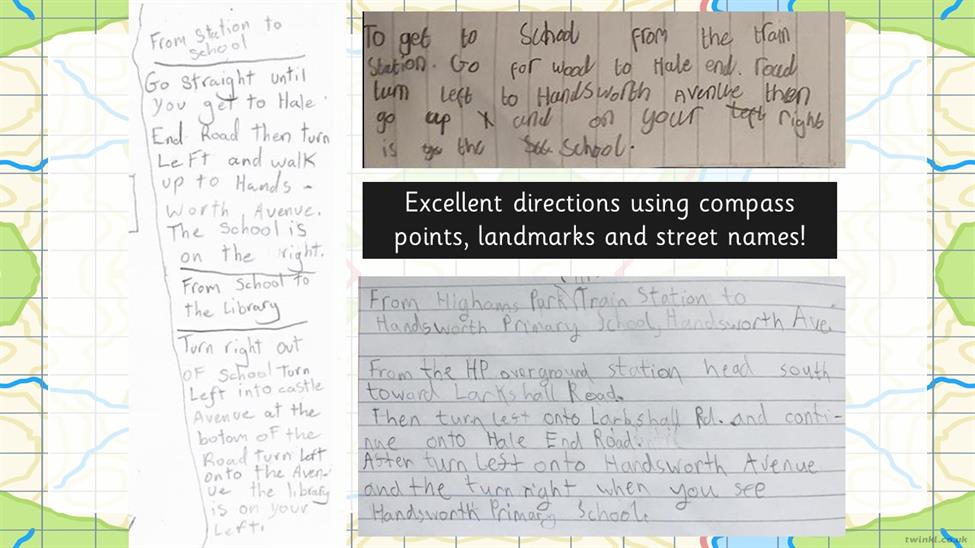 From Station to
School
Go straight until
you get to Hale
End Road then turn
Left and walk
up to Hands-
worth Avenue.
The School is
on the right.
From School to
the Library
Turn right out
OF School Turn
Left into castle
Avenue at the
botom OF the
Road turn Left
onto the Aven-
ue the library
is on your
Left.
To get to School from the train
Station. Go for wood to Hale end. road
turn left to Handsworth Avenue then
go up and on your left right
is the School.
Excellent directions using compass
points, landmarks and street names!
From Highams Park (Train Station to
Handsworth Primary School, Handsworth Ave.
From the HP overground station head south
toward Larkshall Road.
Then turn left onto Larkshall Rd. and conti-
nue onto Hale End Road.
After turn left onto Handsworth Avenue
and the turn right when you see
Handsworth Primary School.
twinkl.co.uk